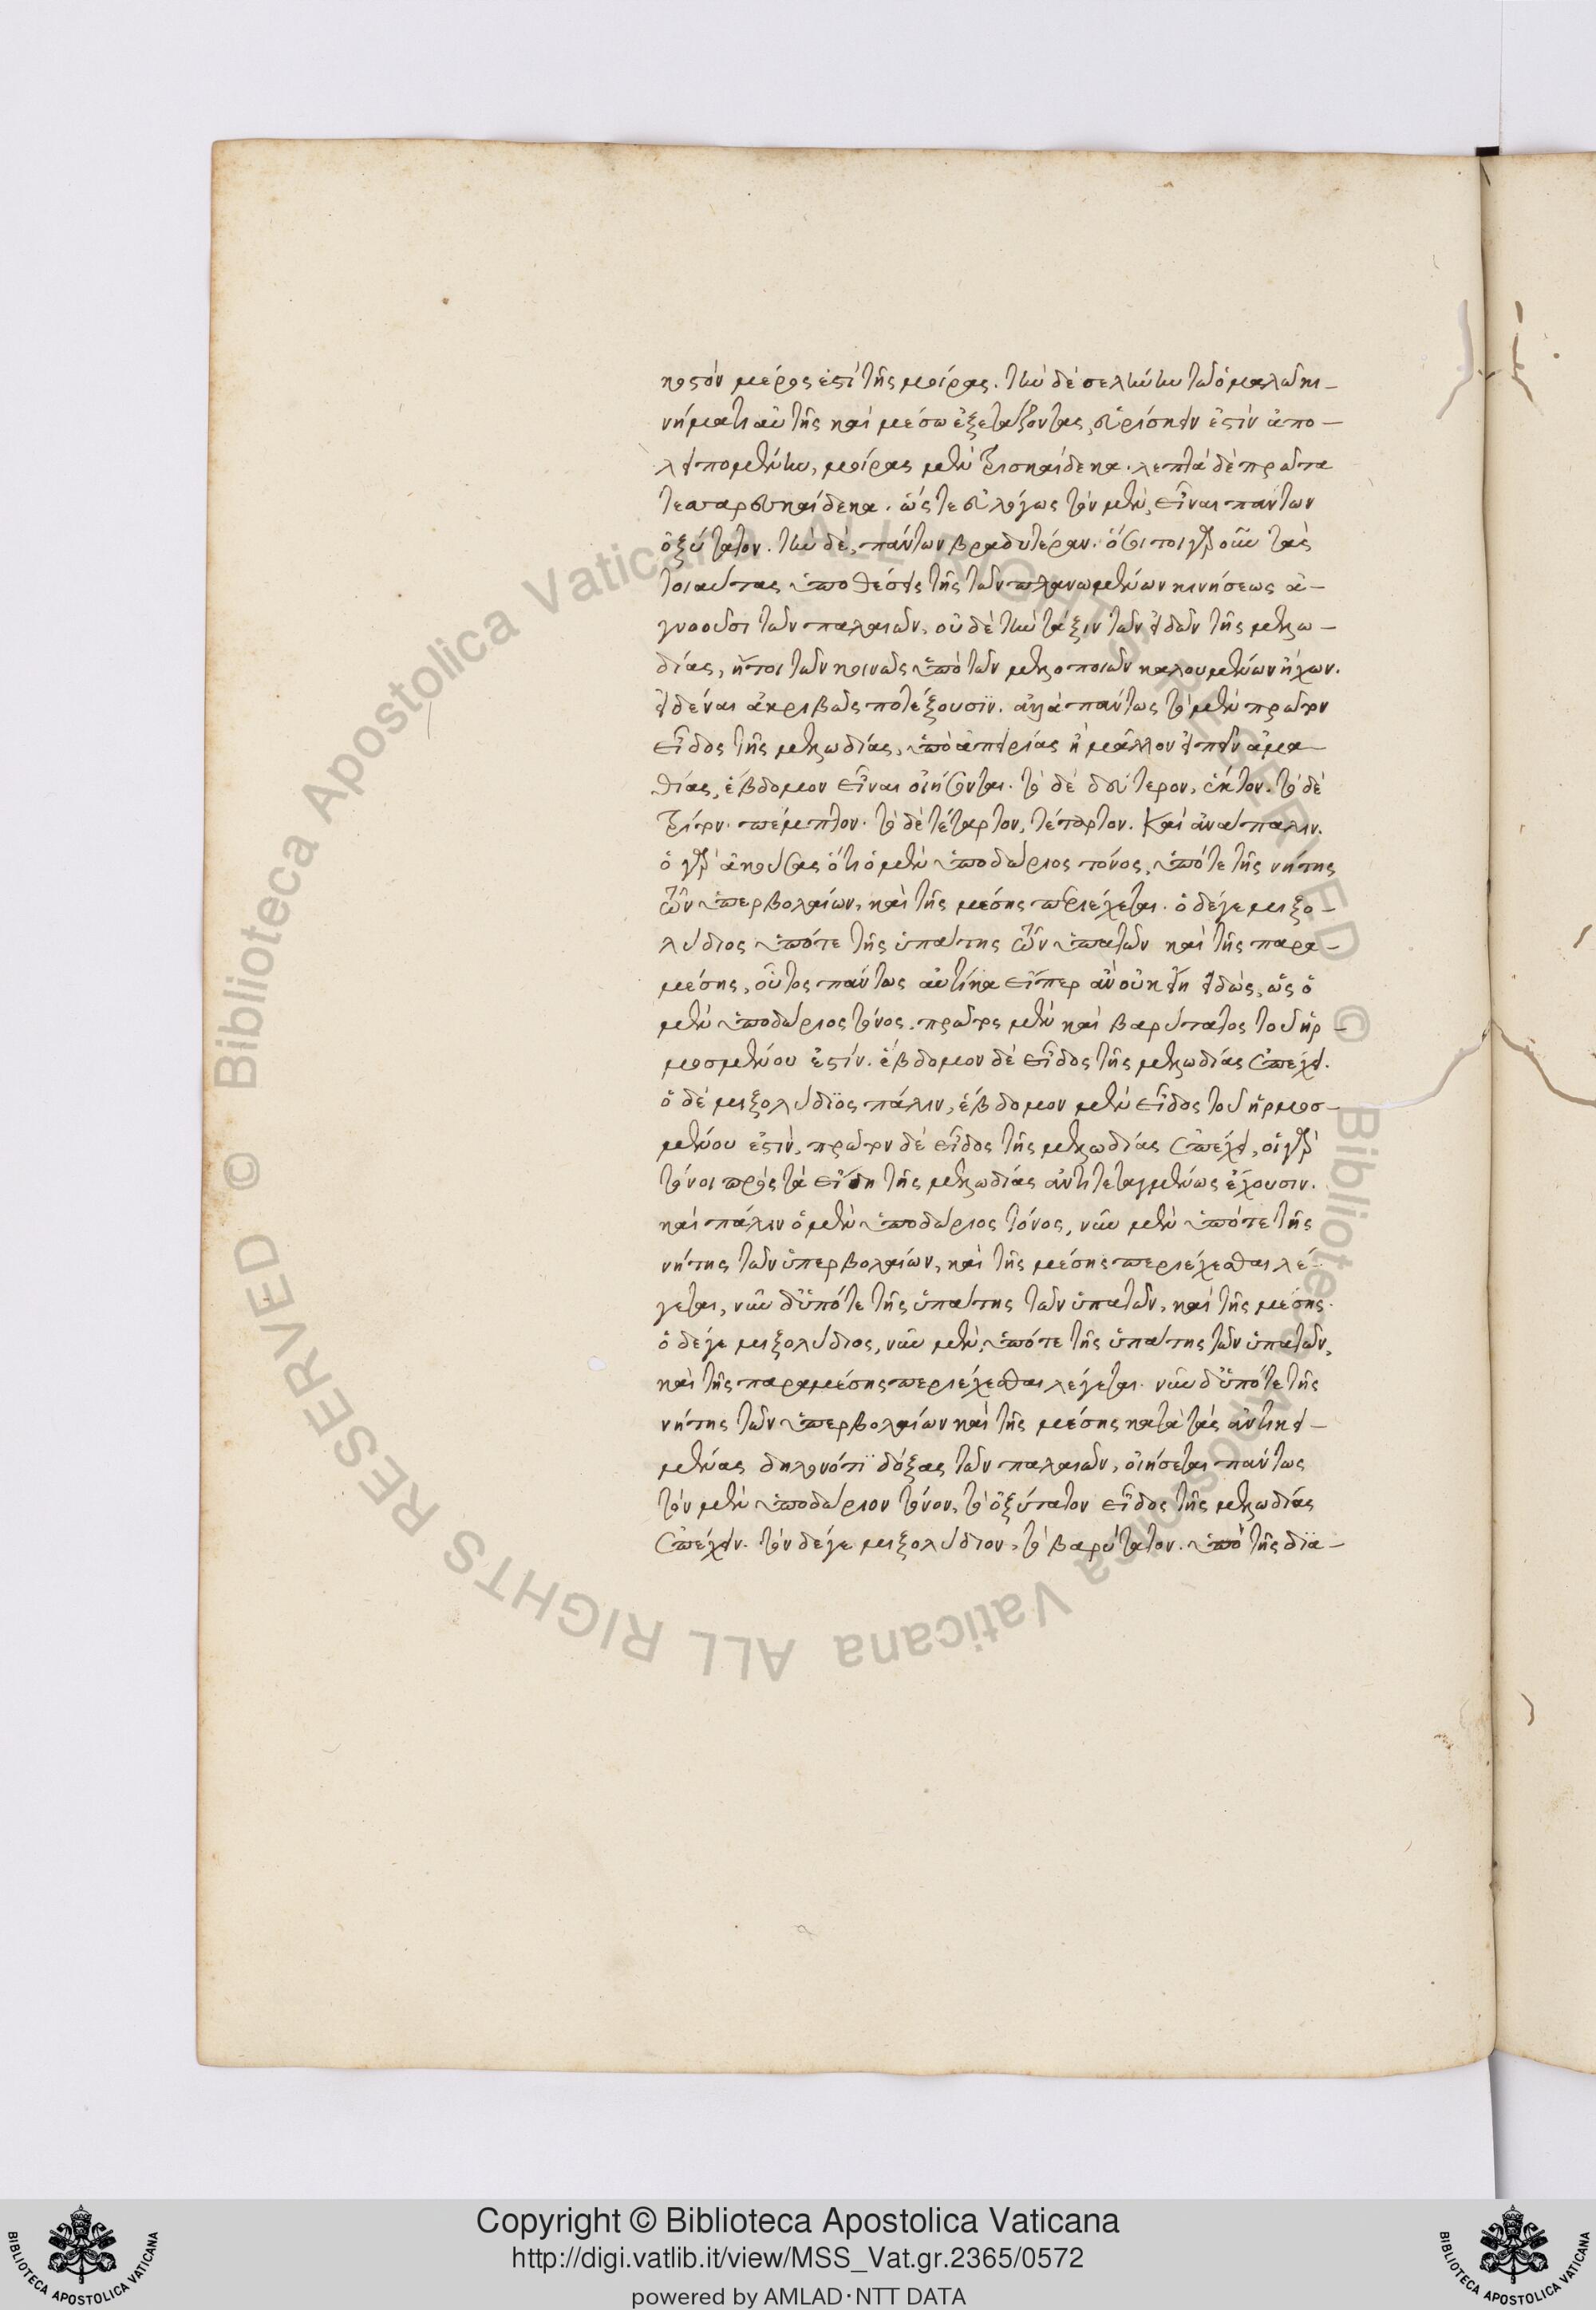 κοστόν μέρος ἐστὶ τῆς μοίρας. τὴν δὲ σελήνην τῶ ὁμαλῶ κι-
νήματι αὐτῆς καὶ μέσω ἐξετάζοντας, εὑρίσκειν ἐστὶν ἀπο-
λειπομένην, μοίρας μὲν τρισκαίδεκα. λεπτὰ δὲ πρῶτα
τεσσαρεσκαίδεκα. ὥστε εὐλόγως τὸν μὲν, εἶναι πάντων
ὀξύτατον. τὴν δὲ, πάντων βραδυτέραν. ὅσοι τοιγαροῦν τὰς
τοιαύτας ὑποθέσεις τῆς τῶν πλανωμένων κινήσεως ἀ-
γνοοῦσι τῶν παλαιῶν, οὐδὲ τὴν τάξιν τῶν εἰδῶν τῆς μελω-
δίας, ἤτοι τῶν κοινῶς ὑπὸ τῶν μελοποιῶν καλουμένων ἤχων.
εἰδέναι ἀκριβῶς ποτὲ ἕξουσϊν. ἀλλὰ πάντως τὸ μὲν πρῶτον
εἶδος τῆς μελωδίας, ὑπὸ ἀπειρίας ἢ μᾶλλον εἰπεῖν ἀμα-
θίας, ἕβδομον εἶναι οἰήσονται. τὸ δὲ δεύτερον, ἕκτον. τὸ δὲ
τρίτον. πέμπτον. τὸ δὲ τέταρτον, τέταρτον. Καὶ ἀνάπαλιν.
ὁ γὰρ ἀκούσας ὅτι ὁ μὲν ὑποδώριος τόνος, ὑπό τε τῆς νήτης
τῶν ὑπερβολαίων, καὶ τῆς μέσης περιέχεται. ὁ δέ γε μιξο-
λύδιος ὑπό τε τῆς ὑπάτης τῶν ὑπατῶν καὶ τῆς παρα-
μέσης, οὗτος πάντως αὐτίκα εἴπερ ἂν οὐκ εἴη εἰδὼς, ὡς ὁ
μὲν ὑποδώριος τόνος. πρῶτος μὲν καὶ βαρύτατος τοῦ ἡρ-
μοσμένου ἐστίν. ἕβδομον δὲ εἶδος τῆς μελωδίας ἐπέχει.
ὁ δὲ μιξολύδϊος πάλιν, ἕβδομον μὲν εἶδος τοῦ ἡρμοσ-
μένου ἐστὶν, πρῶτον δὲ εἶδος τῆς μελωδίας ἐπέχει, οἱ γὰρ
τόνοι πρὸς τὰ εἴδη τῆς μελωδίας ἀντιτεταγμένως ἔχουσιν.
καὶ πάλιν ὁ μὲν ὑποδώριος τόνος, νῦν μὲν ὑπό τε τῆς
νήτης τῶν ὑπερβολαίων, καὶ τῆς μέσης περιέχεσθαι λέ-
γεται, νῦν δ' ὑπό τε τῆς ὑπάτης τῶν ὑπατῶν, καὶ τῆς μέσης.
ὁ δέ γε μιξολύδιος, νῦν μὲν, ὑπό τε τῆς ὑπάτης τῶν ὑπατῶν,
καὶ τῆς παραμέσης περιέχεσθαι λέγεται. νῦν δ' ὑπό τε τῆς
νήτης τῶν ὑπερβολαίων καὶ τῆς μέσης κατὰ τὰς ἀντικει-
μένας δηλονότϊ δόξας τῶν παλαιῶν, οἰήσεται πάντως
τὸν μὲν ὑποδώριον τόνον, τὸ ὀξύτατον εἶδος τῆς μελωδίας
ἐπέχειν. τὸν δέ γε μιξολύδιον, τὸ βαρύτατον. ὑπὸ τῆς δϊα-
Copyright © Biblioteca Apostolica Vaticana
http://digi.vatlib.it/view/MSS_Vat.gr.2365/0572
powered by AMLAD·NTT DATA